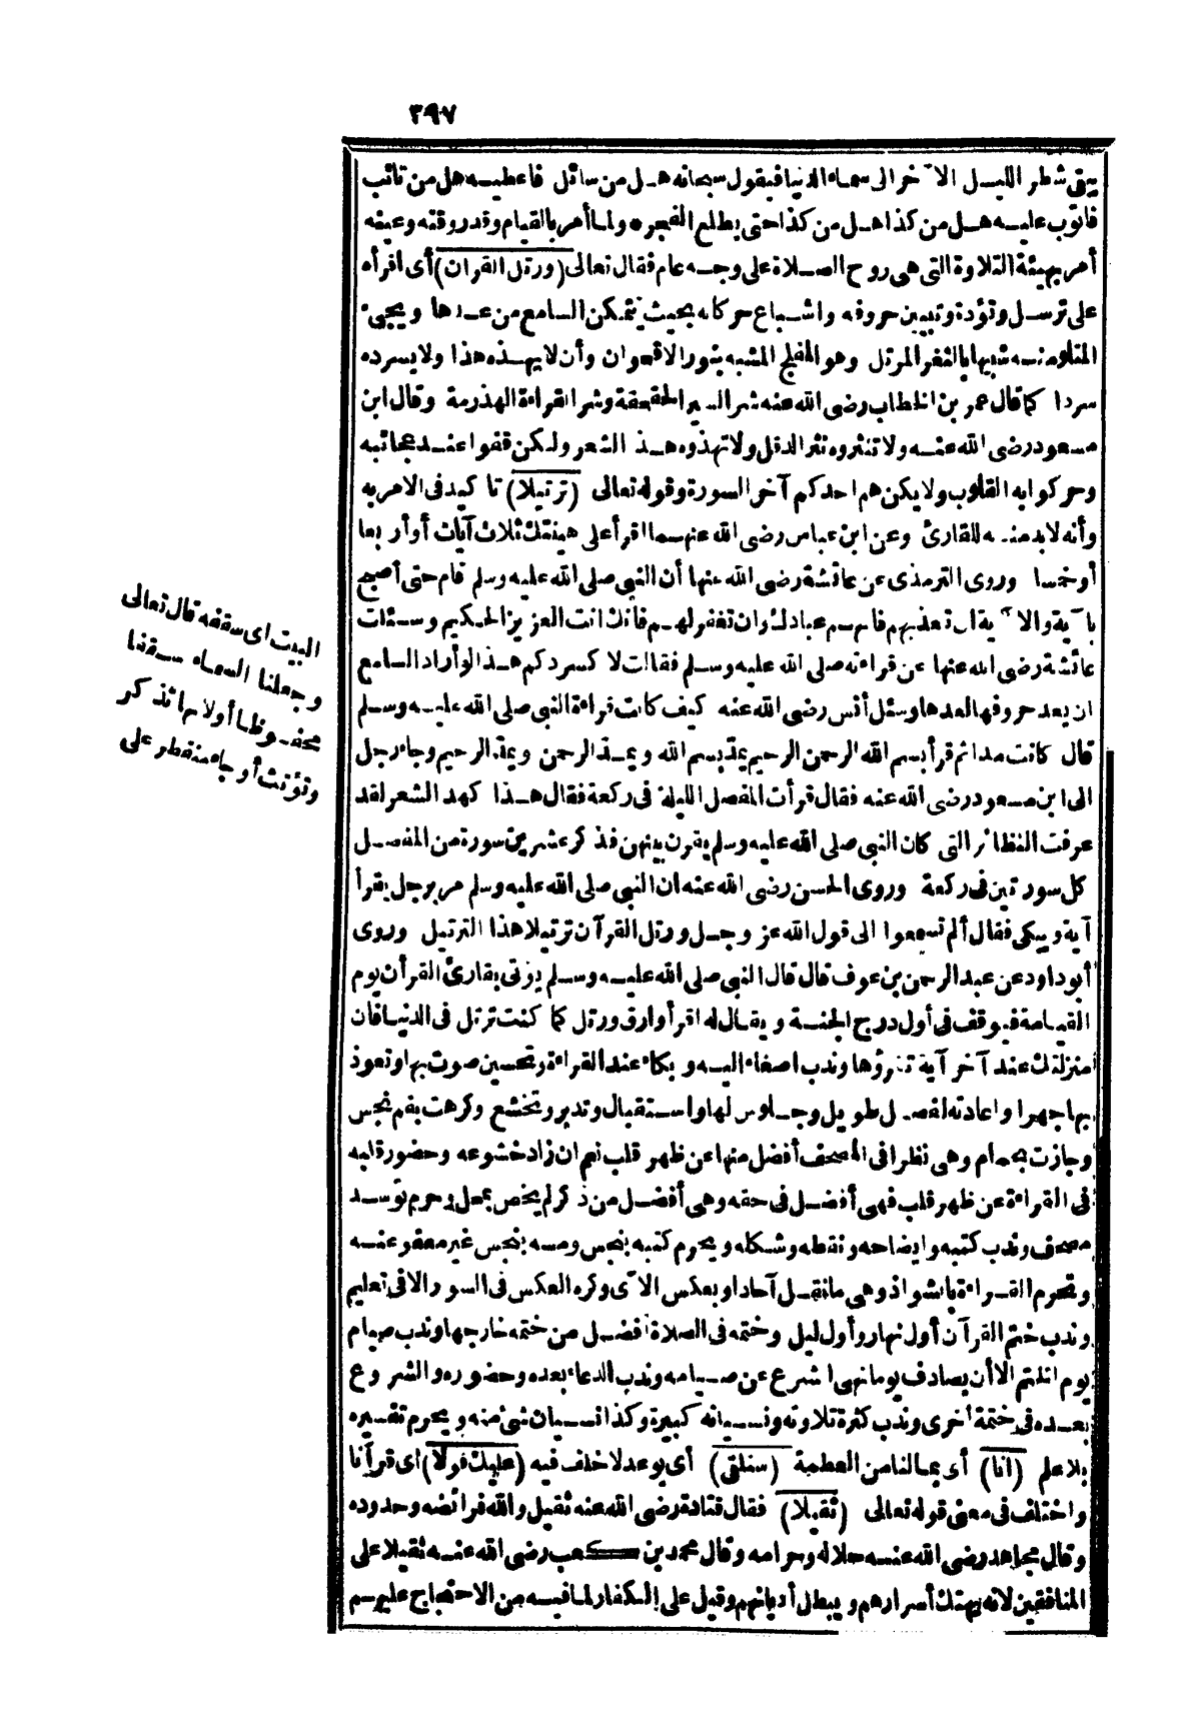 ٣٩٧
يبقى شطر الليل الآخر الى سماء الدنيا فيقول سبحانه هل من سائل فاعطيه هل من تائب
فاتوب عليه هل من كذا هل من كذا حتى يطلع الفجر * ولما أمر بالقيام وقدر وقته وعينه
أمر بهيئة التلاوة التى هى روح الصلاة على وجه عام فقال تعالى (ورتل القرآن) أى اقرأه
على ترسل وتؤدة وتبيين حروفه واشباع حركاته بحيث يتمكن السامع من عدها ويجىء
المتلو منه شبيها بالثغر المرتل وهو المفلج المشبه بنور الاقحوان وأن لا يهذه هذا ولا يسرده
سردا كما قال عمر بن الخطاب رضى الله عنه شر السير الحقحقة وشر القراءة الهذرمة وقال ابن
مسعود رضى الله عنه ولا تنثروه نثر الدقل ولا تهذوه هذ الشعر ولكن قفوا عند عجائبه
وحركوا به القلوب ولا يكن هم احدكم آخر السورة وقوله تعالى (ترتيلا) تاكيد فى الامر به
وأنه لابد منه للقارئ وعن ابن عباس رضى الله عنهما اقرأ على هينتك ثلاث آيات أو أربعا
أو خمسا وروى الترمذى عن عائشة رضى الله عنها أن النبى صلى الله عليه وسلم قام حتى أصبح
بآية والآية ان تعذبهم فانهم عبادك وان تغفر لهم فانك انت العزيز الحكيم وسئلت
عائشة رضى الله عنها عن قراءته صلى الله عليه وسلم فقالت لا كسردكم هذا لو أراد السامع
ان يعد حروفها لعدها وسئل أنس رضى الله عنه كيف كانت قراءة النبى صلى الله عليه وسلم
قال كانت مدا ثم قرأ بسم الله الرحمن الرحيم يمد بسم الله ويمد الرحمن ويمد الرحيم وجاء رجل
الى ابن مسعود رضى الله عنه فقال قرأت المفصل الليلة فى ركعة فقال هذا كهذ الشعر لقد
عرفت النظائر التى كان النبى صلى الله عليه وسلم يقرن بينهن فذكر عشرين سورة من المفصل
كل سورتين فى ركعة وروى الحسن رضى الله عنه ان النبى صلى الله عليه وسلم مر برجل يقرأ
آية ويبكى فقال ألم تسمعوا الى قول الله عز وجل ورتل القرآن ترتيلا هذا الترتيل وروى
أبو داود عن عبد الرحمن بن عوف قال قال النبى صلى الله عليه وسلم يؤتى بقارئ القرآن يوم
القيامة فيوقف فى أول درج الجنة ويقال له اقرأ وارق ورتل كما كنت ترتل فى الدنيا فان
منزلتك عند آخر آية تقرؤها وندب اصغاء اليه وبكاء عند القراءة وتحسين صوت بها وتعوذ
بها جهرا واعادته لفصل طويل وجلوس لها واستقبال وتدبر وتخشع وكرهت بفم نجس
وجازت بحمام وهى نظرا فى المصحف أفضل منها عن ظهر قلب نعم ان زاد خشوعه وحضور قلبه
فى القراءة عن ظهر قلب فهى أفضل فى حقه وهى أفضل من ذكر لم يخص بمحل وحرم توسد
مصحف وندب كتبه وايضاحه ونقطه وشكله ويحرم كتبه بنجس ومسه بنجس غير معفو عنه
وتحرم القراءة بالشواذ وهى ما نقل آحادا وبعكس الآى وكره العكس فى السور الا فى تعليم
وندب ختم القرآن أول نهار وأول ليل وختمه فى الصلاة افضل من ختمه خارجها وندب صيام
يوم الختم الا أن يصادف يوما نهى الشرع عن صيامه وندب الدعاء بعده وحضوره والشروع
بعده فى ختمة أخرى وندب كثرة تلاوته ونسيانه كبيرة وكذا نسيان شئ منه ويحرم تفسيره
بلا علم (انا) أى بما لنا من العظمة (سنلقى) أى بوعد لا خلف فيه (عليك قولا) اى قرآنا
واختلف فى معنى قوله تعالى (ثقيلا) فقال قتادة رضى الله عنه ثقيل والله فرائضه وحدوده
وقال مجاهد رضى الله عنه حلاله وحرامه وقال محمد بن كعب رضى الله عنه ثقيلا على
المنافقين لانه يهتك أسرارهم ويبطل أديانهم وقيل على الكفار لما فيه من الاحتجاج عليهم
البيت اى سقفه قال تعالى
وجعلنا السماء سقفا
محفوظا أولانها تذكر
وتؤنث أو جاء منفطر على